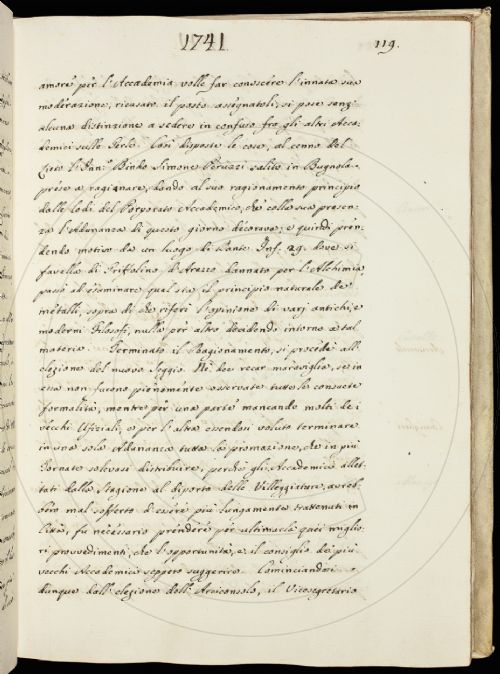 1741
119.
amore per l'Accademia volle far conoscere l'innata sua
moderazione, ricusato il posto assegnatoli, si pose senz'
alcuna distinzione a sedere in confuso fra gli altri Acca-
demici sulle Gerle. Così disposte le cose, al cenno del
l'Inn.º Bindo Simone Peruzzi salito in Bugnola
prese a ragionare, dando al suo ragionamento principio
dalle lodi del Porporato Accademico, che colla sua presen-
za l'Adunanza di questo giorno decorava; e quindi pren-
dendo motivo da un luogo di Dante Inf. 29. dove si
favella di Griffolino d'Arezzo dannato per l'Alchimia
passò ad esaminare qual sia il principio naturale de'
metalli, sopra di che riferì l'opinione di varj antichi, e
moderni Filosofi, nulla per altro decidendo intorno a tal
materia. Terminato il Ragionamento, si procedè all'
elezione del nuovo Seggio. Nè dee recar maraviglia, se in
essa non furono pienamente osservate tutte le consuete
formalità, mentre per una parte mancando molti de i
vecchi Ufiziali, e per l'altra essendosi voluto terminare
in una sola Adunanza tutta la promozione, che in più
Tornate solevasi distribuire, perchè gli Accademici allet-
tati dalla Stagione al diporto delle Villeggiature, avreb-
bero mal sofferto d'essere più lungamente trattenuti in
Città, fu necessario prendere per ultimarla quei miglio-
ri provvedimenti, che l'opportunità, e il consiglio dei più
vecchi Accademici seppero suggerire. Cominciandosi
dunque dall'elezione dell'Arciconsolo, il Vicesegretario